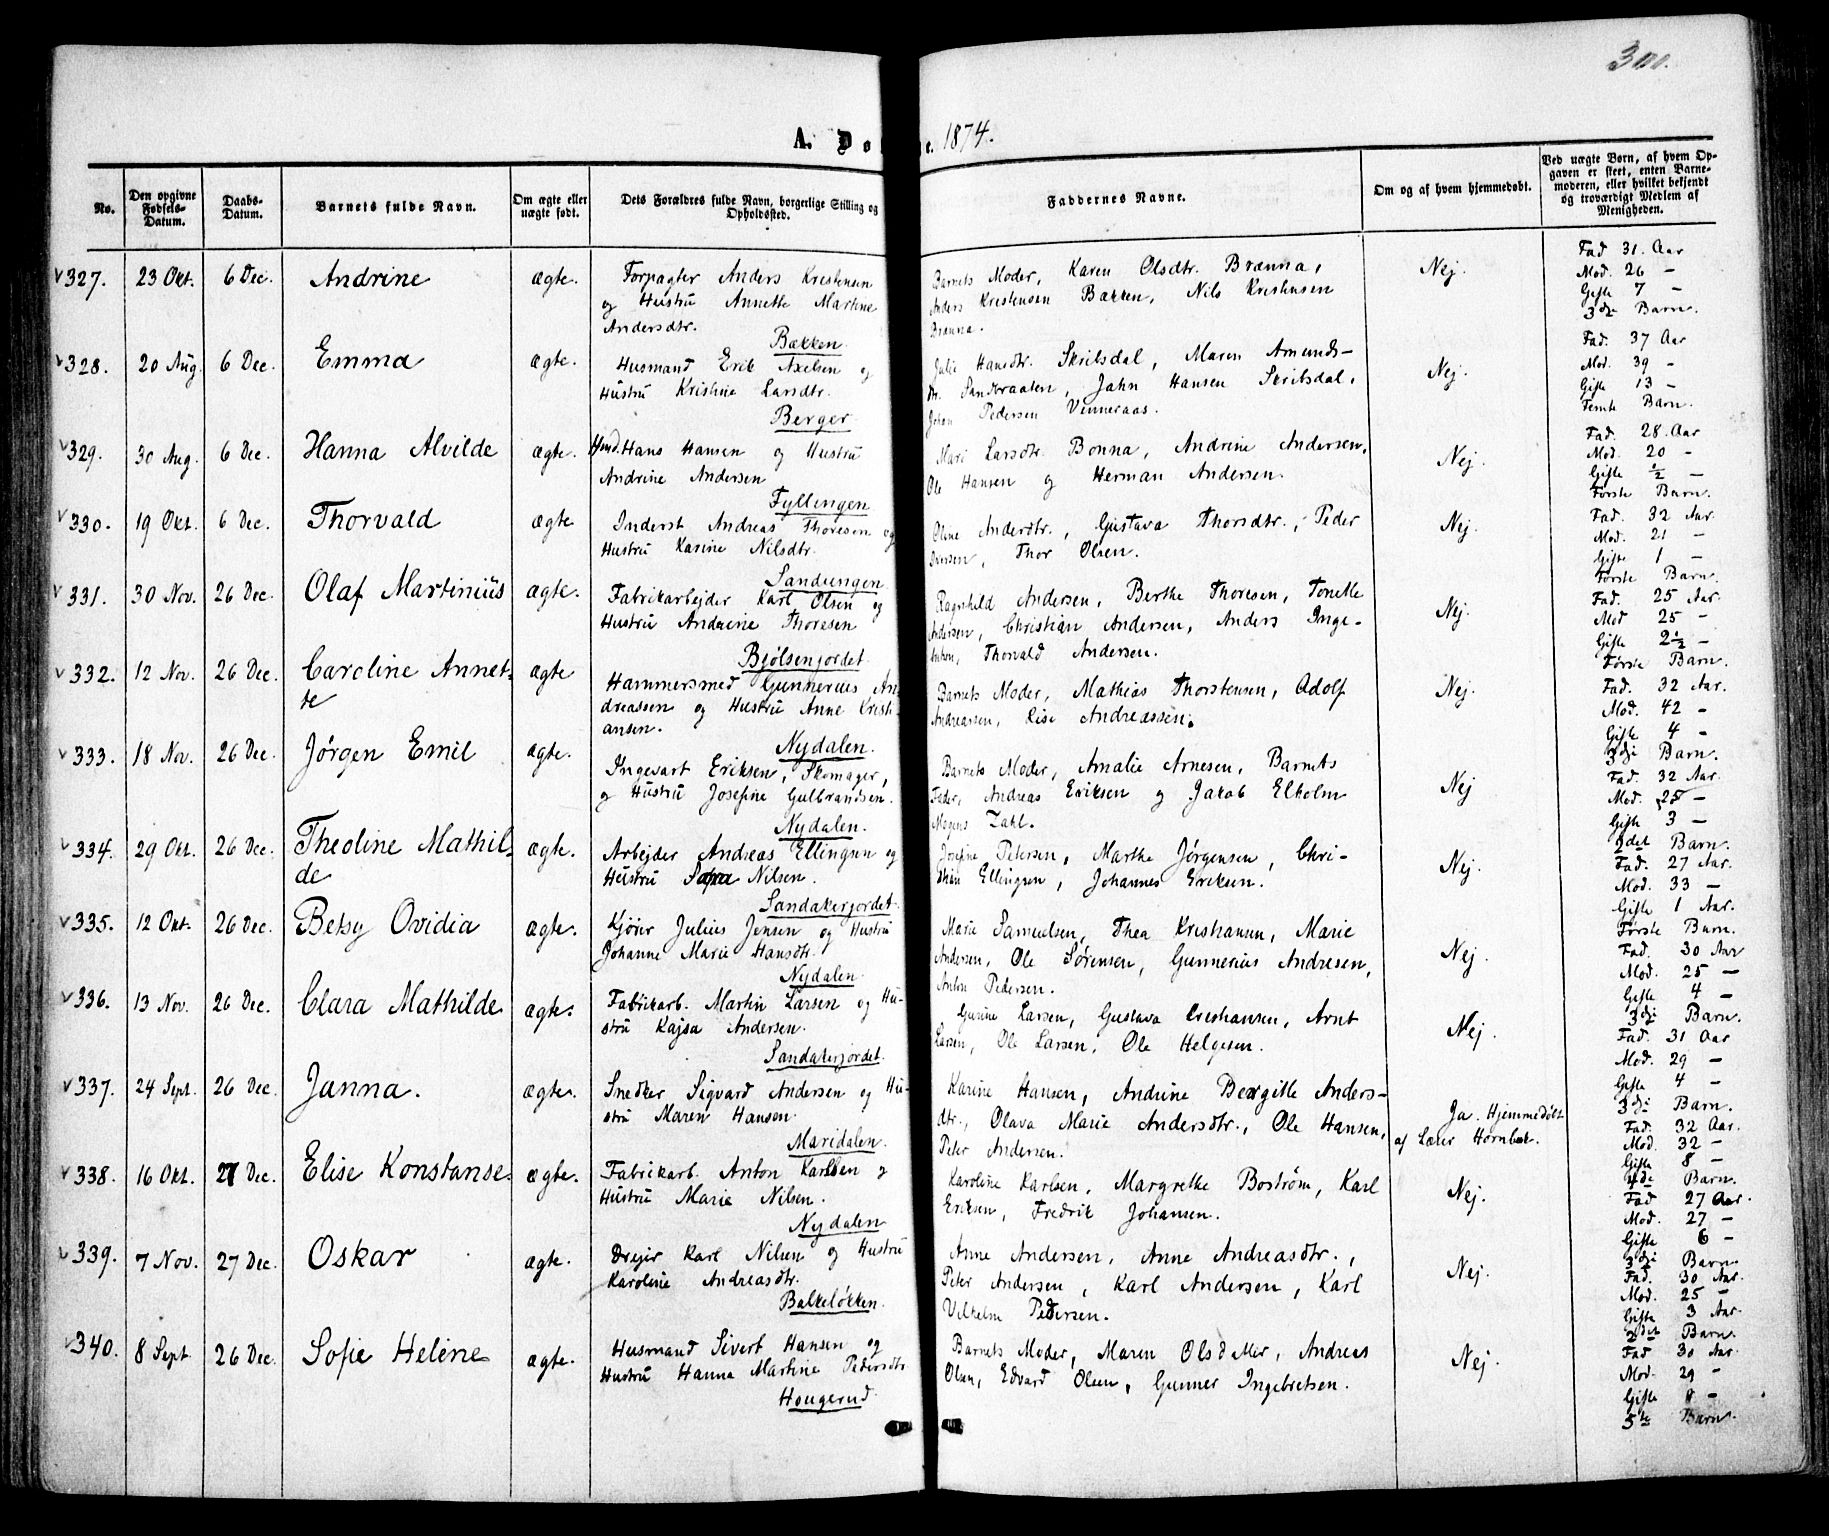 300.
A. Dø e. 1874.
No.
Den opgivne Fødsels-Datum.
Daabs-Datum.
Barnets fulde Navn.
Om ægte eller uægte født.
Dets Forældres fulde Navn, borgerlige Stilling og Opholdssted.
Faddernes Navne.
Om og af hvem hjemmedøbt.
Ved uægte Børn, af hvem Opgaven er skeet, enten Barnemoderen, eller hvilket bekjendt og troværdigt Medlem af Menigheden.
327. 23 Okt. 6 Dec. Andrine ægte. Forpagter Anders Kristensen
og Hustru Annette Martine
Andersdtr.
Bakken
Barnets Moder, Karen Olsdtr. Brænna,
Anders Kristensen Bakken, Nils Kristensen
Brænna.
Nej.
Fad 31. Aar
Mod. 26 –
Gifte 7 –
3die Barn.
328. 20 Aug. 6 Dec. Emma ægte. Husmand Erik Axelsen og
Hustru Kristine Larsdtr.
Berger
Julie Hansdtr. Skribsdal, Maren Amunds-
dtr. Sandbraaten, Jahn Hansen Skribsdal,
Johan Pedersen Vinneraas.
Nej.
Fad. 37 Aar
Mod. 39 –
Gifte 13 –
Femte Barn.
329. 30 Aug. 6 Dec. Hanna Alvilde ægte. Hmd. Hans Hansen og Hustru
Andrine Andersen
Fyllingen
Mari Larsdtr. Bonna, Andrine Andersen,
Ole Hansen og Herman Andersen.
Nej.
Fad. 28. Aar
Mod. 20 –
Gifte ½ –
Første Barn.
330. 19 Okt. 6 Dec. Thorvald ægte Inderst Andreas Thoresen og
Hustru Karine Nilsdtr.
Sandungen
Oline Anderdtr., Gustava Thorsdtr., Peder
Iversen, Thor Olsen.
Nej.
Fad. 32 Aar.
Mod. 21 –
Gifte 1 –
Første Barn.
331. 30 Nov. 26 Dec. Olaf Martinius ægte. Fabrikarbejder Karl Olsen og
Hustru Andrine Thoresen
Bjølsenjordet.
Ragnhild Andersen, Berthe Thoresen, Tonette
Andersen, Christian Andersen, Anders Inge-
Thorvald Andersen.
Nej.
Fad. 25 Aar.
Mod 25 –
Gifte 2½ –
Første Barn.
332. 12 Nov. 26 Dec. Caroline Annet-
te
ægte Hammersmed Gunnerius An-
dreassen og Hustru Anne Kristi-
ansen.
Nydalen.
Barnets Moder, Mathias Thorstensen, Adolf
Andreassen, Lise Andreassen.
Nej.
Fad. 32 Aar.
Mod. 42 –
Gifte 4 –
3die Barn.
333. 18 Nov. 26 Dec. Jørgen Emil ægte. Ingevart Eriksen, Skomager,
og Hustru Josefine Gulbrandsen.
Nydalen.
Barnets Moder, Amalie Arnesen, Barnets
Fader, Andreas Eriksen og Jakob Elholm
Mogens Zahl.
Nej
Fad. 32 Aar.
Mod. 25 –
Gifte 3 –
2det Barn.
334. 29 Okt. 26 Dec. Theoline Mathil-
de
ægte. Arbejder Andreas Ellingsen og
Hustru Nilsen.
Sandakerjordet.
Josefine Petersen, Marthe Jørgensen, Chri-
stian Ellingsen, Johannes Eriksen.
Nej.
Fad. 27 Aar.
Mod. 33 –
Gifte 1 Aar.
Første Barn.
335. 12 Okt. 26 Dec. Betsy Ovidia ægte. Kjører Julius Jensen og Hustru
Johanne Marie Hansdtr.
Nydalen
Marie Samuelsen, Thea Kristiansen, Marie
Andersen, Ole Sørensen, Gunnerius Andresen,
Anton Pedersen.
Nej.
Fad. 30 Aar
Mod. 25 –
Gifte 4 –
3die Barn.
336. 13 Nov. 26 Dec. Clara Mathilde ægte. Fabrikarb. Martin Larsen og Hu-
stru Kajsa Andersen.
Sandakerjordet.
Gurine Larsen, Gustava Cristiansen, Arnt
Larsen, Ole Larsen, Ole Helgesen.
Nej.
Fad. 31 Aar
Mod. 29 –
Gifte 4 –
3die Barn.
337. 24 Sept. 26 Dec. Janna. ægte. Snedker Sigvard Andersen og Hu-
stru Maren Hansen.
Maridalen.
Karine Hansen, Andrine Bergitte Anders-
dtr., Olava Marie Andersdtr., Ole Hansen,
Peter Andersen.
Ja. Hjemmedøbt
af Lærer Hornbæk.
Fad. 32 Aar.
Mod. 32 –
Gifte 8 –
4de Barn.
338. 16 Okt. 27 Dec. Elise Konstanse. ægte. Fabrikarb. Anton Karlsen og
Hustru Marie Nilsen.
Nydalen
Karoline Karlsen, Margrethe Bostrøm, Karl
Eriksen, Fredrik Johansen.
Nej.
Fad 27 Aar.
Mod. 27 –
Gifte 6 –
3die Barn.
339. 7 Nov. 27 Dec. Oskar ægte. Drejer Karl Nilsen og Hustru
Karoline Andreasdtr.
Balkeløkken.
Anne Andersen, Anne Andreasdtr.,
Peter Andersen, Karl Andersen, Karl
Vilhelm Pedersen.
Nej.
Fad. 30 Aar.
Mod. 25 –
Gifte 3 Aar.
2det Barn.
340. 8 Sept. 26 Dec. Sofie Helene ægte. Husmand Sivert Hansen og
Hustru Hanna Martine Pedersdtr.
Hougerud.
Barnets Moder, Maren Olsdatter, Andreas
Olsen, Edvard Olsen, Gunner Ingebretsen.
Nej.
Fad 30 Aar.
Mod. 29 –
Gifte 8 –
5te Barn.